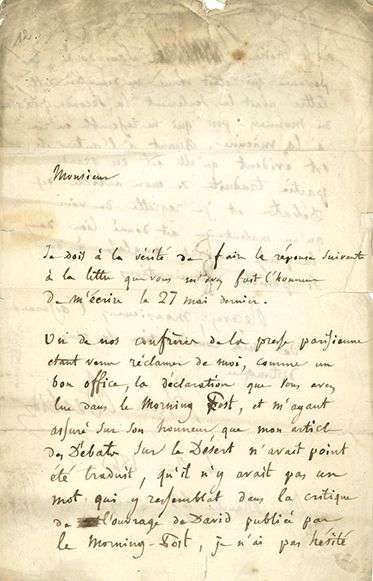 12.
Monsieur
Je dois à la vérité de faire la réponse suivante
à la lettre que vous m'avez fait l'honneur
de m'écrire le 27 mai dernier.
Un de nos confrères de la presse parisienne
etant venu réclamer de moi, comme un
bon office, la déclaration que vous avez
lue dans le Morning Post, et m'ayant
assuré sur son honneur que mon article
des Débats sur le Désert n'avait point
été traduit, qu'il n'y avait pas un
mot qui y ressemblât dans la critique
de l'ouvrage de David publiée par
le Morning-Post, je n'ai pas hésité